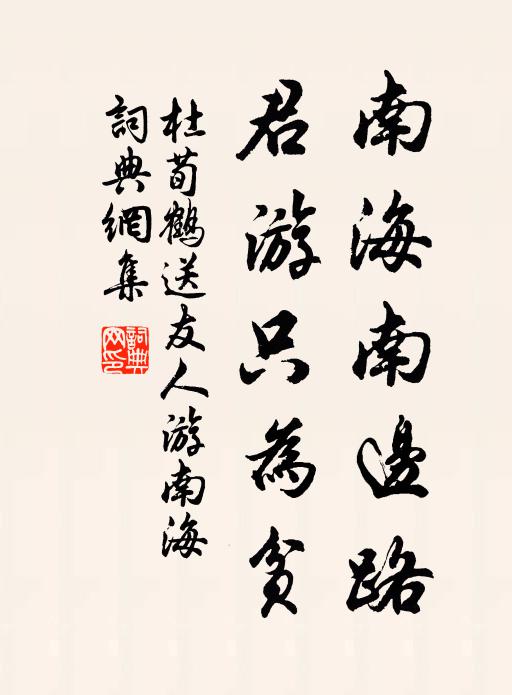 南海南邊路
君游只為貧
杜荀鶴送友人游南海
詞典網集
詞典網印